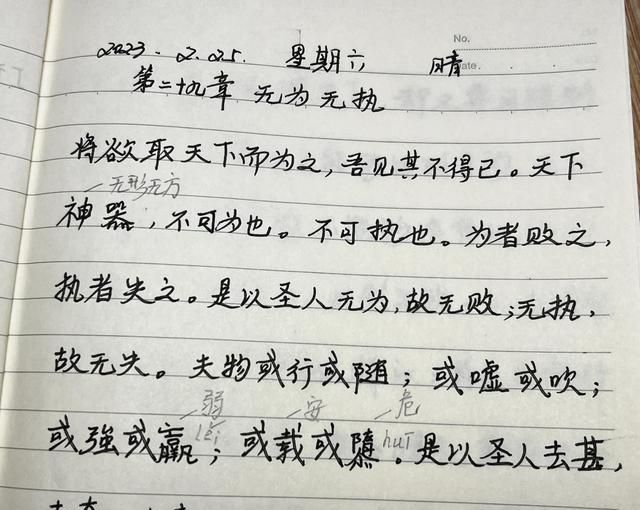 No.
2023.2.25. 星期六 晴
ate.
第二十九章 无为无执
将欲取天下而为之，吾见其不得已。天下
无形无方
神器，不可为也。不可执也。为者败之，
执者失之。是以圣人无为，故无败；无执，
故无失。夫物或行或随；或嘘或吹；
弱 安 危
léi huī
或强或羸；或载或隳。是以圣人去甚，